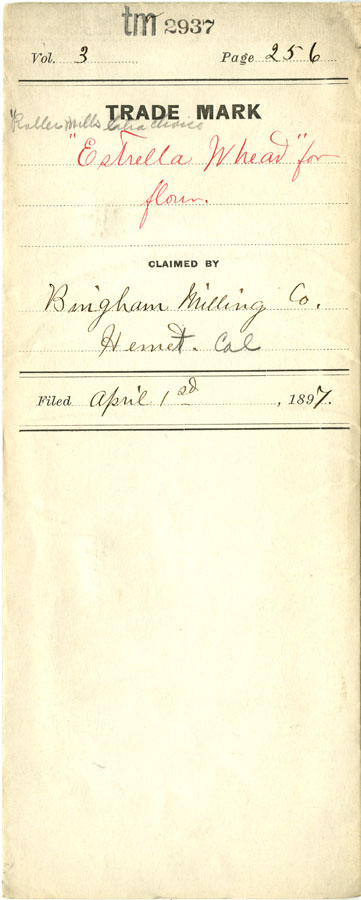 tm 2937
Vol. 3 Page 256
TRADE MARK
"Roller Mills Extra choice
"Estrella Whead" for
flour.
CLAIMED BY
Bingham Milling Co.
Hemet. Cal
Filed April 1sd, 1897.